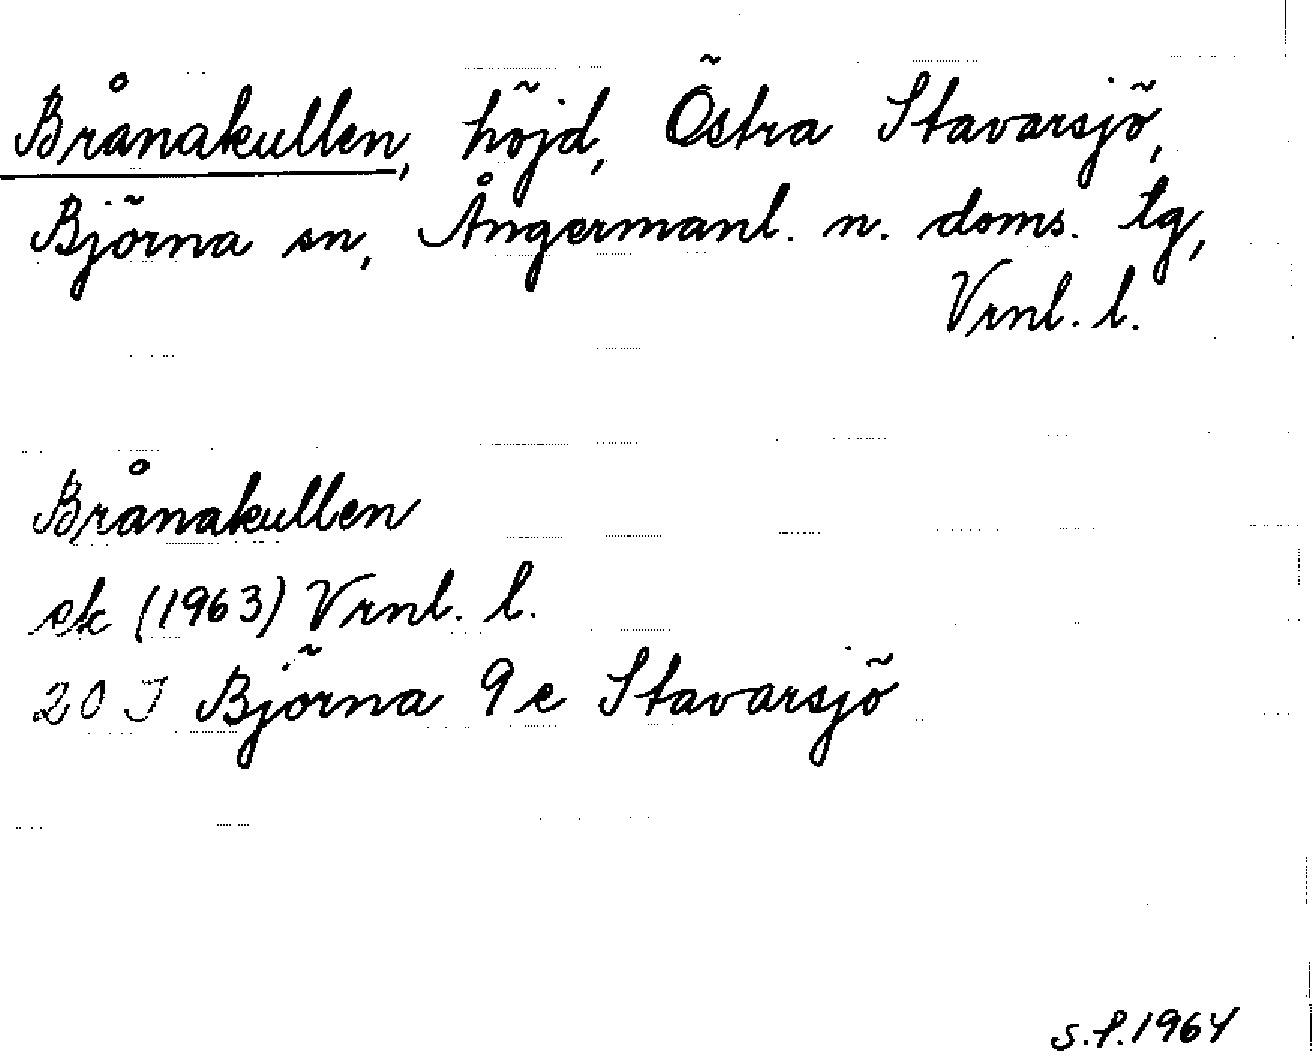 Brånakullen, höjd, Östra Stavarsjö,
Björna sn, Ångermanl. n. doms. tg,
Vrnl. l.
Brånakullen
ek (1963) Vrnl. l.
20 J Björna 9 e Stavarsjö
S.f. 1964